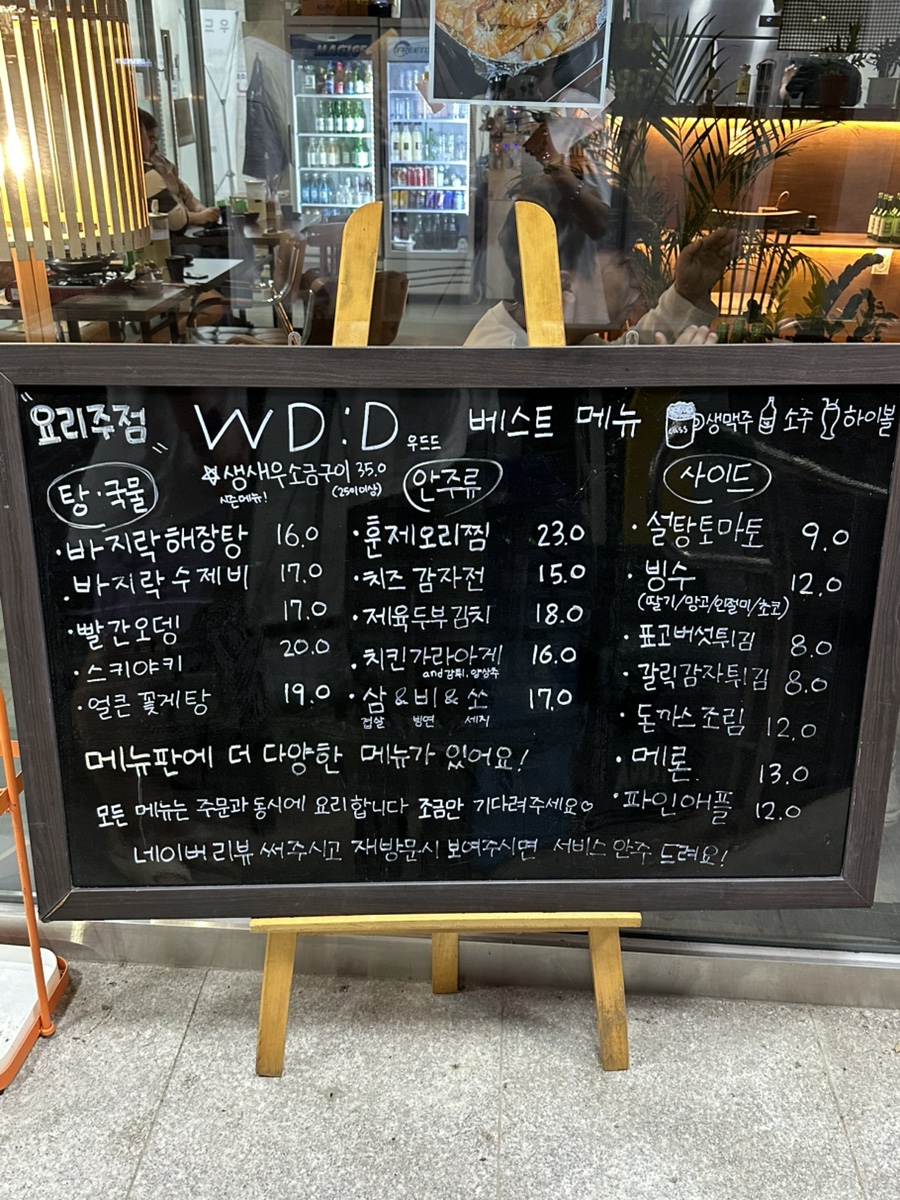 MAGIC
FREETO
"요리주점" WD:D 우드드 베스트 메뉴 cass 생맥주 소주 하이볼
생새우소금구이 35.0
시즌메뉴! (25미이상)
탕·국물
·바지락해장탕 16.0
·바지락수제비 17.0
·빨간오뎅 17.0
·스키야키 20.0
·얼큰꽃게탕 19.0
안주류
·훈제오리찜 23.0
·치즈감자전 15.0
·제육두부김치 18.0
·치킨가라아게 16.0
and감튀, 양상추
·삼&비&쏘 17.0
겹살 빔면 세지
사이드
·설탕토마토 9.0
·빙수 12.0
(딸기/망고/인절미/초코)
·표고버섯튀김 8.0
·갈릭감자튀김 8.0
·돈까스조림 12.0
·메론 13.0
·파인애플 12.0
메뉴판에 더 다양한 메뉴가 있어요!
모든 메뉴는 주문과동시에 요리합니다 조금만 기다려주세요♡
네이버리뷰 써주시고 재방문시 보여주시면 서비스 안주 드려요!